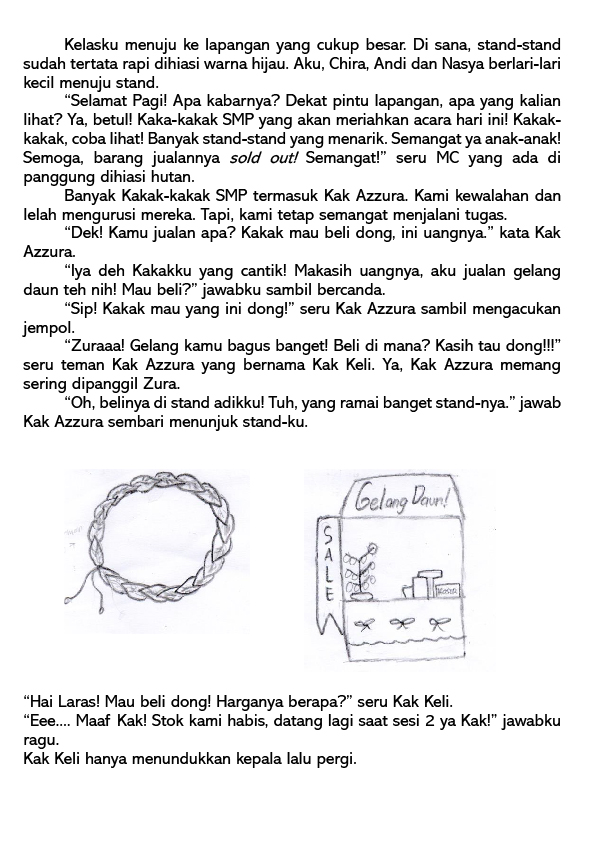 Kelasku menuju ke lapangan yang cukup besar. Di sana, stand-stand
sudah tertata rapi dihiasi warna hijau. Aku, Chira, Andi dan Nasya berlari-lari
kecil menuju stand.
“Selamat Pagi! Apa kabarnya? Dekat pintu lapangan, apa yang kalian
lihat? Ya, betul! Kaka-kakak SMP yang akan meriahkan acara hari ini! Kakak-
kakak, coba lihat! Banyak stand-stand yang menarik. Semangat ya anak-anak!
Semoga, barang jualannya sold out! Semangat!” seru MC yang ada di
panggung dihiasi hutan.
Banyak Kakak-kakak SMP termasuk Kak Azzura. Kami kewalahan dan
lelah mengurusi mereka. Tapi, kami tetap semangat menjalani tugas.
“Dek! Kamu jualan apa? Kakak mau beli dong, ini uangnya.” kata Kak
Azzura.
“Iya deh Kakakku yang cantik! Makasih uangnya, aku jualan gelang
daun teh nih! Mau beli?” jawabku sambil bercanda.
“Sip! Kakak mau yang ini dong!” seru Kak Azzura sambil mengacukan
jempol.
“Zuraaa! Gelang kamu bagus banget! Beli di mana? Kasih tau dong!!!”
seru teman Kak Azzura yang bernama Kak Keli. Ya, Kak Azzura memang
sering dipanggil Zura.
“Oh, belinya di stand adikku! Tuh, yang ramai banget stand-nya.” jawab
Kak Azzura sembari menunjuk stand-ku.
Gelang Daun!
SALE
“Hai Laras! Mau beli dong! Harganya berapa?” seru Kak Keli.
“Eee.... Maaf Kak! Stok kami habis, datang lagi saat sesi 2 ya Kak!” jawabku
ragu.
Kak Keli hanya menundukkan kepala lalu pergi.